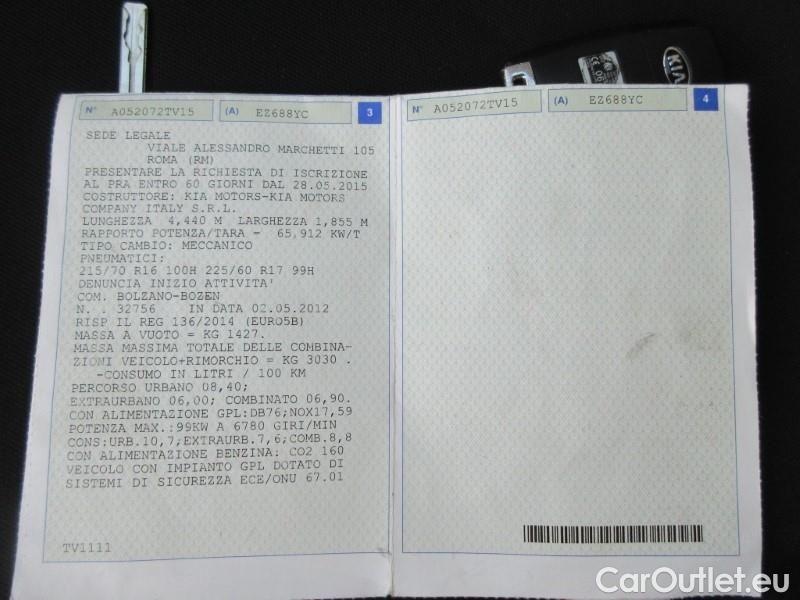 KIA
N° A052072TV15 (A) EZ688YC 3
SEDE LEGALE
VIALE ALESSANDRO MARCHETTI 105
ROMA (RM)
PRESENTARE LA RICHIESTA DI ISCRIZIONE
AL PRA ENTRO 60 GIORNI DAL 28.05.2015
COSTRUTTORE: KIA MOTORS-KIA MOTORS
COMPANY ITALY S.R.L.
LUNGHEZZA 4,440 M LARGHEZZA 1,855 M
RAPPORTO POTENZA/TARA = 65,912 KW/T
TIPO CAMBIO: MECCANICO
PNEUMATICI:
215/70 R16 100H 225/60 R17 99H
DENUNCIA INIZIO ATTIVITA'
COM. BOLZANO-BOZEN
N. . 32756 IN DATA 02.05.2012
RISP IL REG 136/2014 (EURO5B)
MASSA A VUOTO = KG 1427.
MASSA MASSIMA TOTALE DELLE COMBINA-
ZIONI VEICOLO+RIMORCHIO = KG 3030 .
-CONSUMO IN LITRI / 100 KM
PERCORSO URBANO 08,40;
EXTRAURBANO 06,00; COMBINATO 06,90.
CON ALIMENTAZIONE GPL:DB76;NOX17,59
POTENZA MAX.:99KW A 6780 GIRI/MIN
CONS:URB.10,7;EXTRAURB.7,6;COMB.8,8
CON ALIMENTAZIONE BENZINA: CO2 160
VEICOLO CON IMPIANTO GPL DOTATO DI
SISTEMI DI SICUREZZA ECE/ONU 67.01
TV1111
N° A052072TV15 (A) EZ688YC 4
CarOutlet.eu